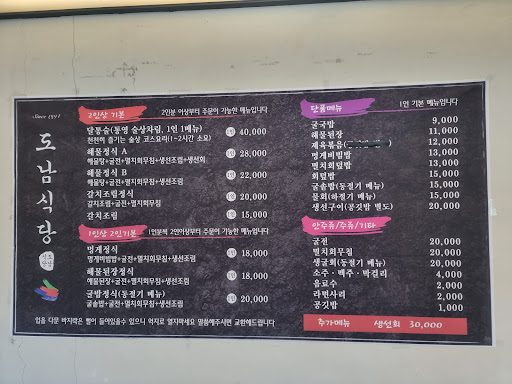 Since 1991
도남식당
2인상 기본
2인분 이상부터 주문이 가능한 메뉴입니다
달통술(통영 술상차림, 1인 1메뉴) 40,000
천천히 즐기는 술상 코스요리(1~2시간 소요)
해물정식 A 28,000
해물탕+굴전+멸치회무침+생선조림+생선회
해물정식 B 22,000
해물탕+굴전+멸치회무침+생선조림
갈치조림정식 20,000
갈치조림+굴전+멸치회무침
갈치조림 15,000
1인상 2인기본
1인분씩 2인이상부터 주문이 가능한 메뉴입니다
멍게정식 18,000
멍게비빔밥+굴전+멸치회무침+생선조림
해물된장정식 18,000
해물된장+굴전+멸치회무침+생선조림
굴밥정식(동절기 메뉴) 20,000
굴솥밥+굴전+멸치회무침+생선조림
입을 다문 바지락은 뻘이 들어있을수 있으니 억지로 열지마세요 말씀해주시면 교환해드립니다
단품메뉴
1인 기본 메뉴입니다
굴국밥 9,000
해물된장 11,000
제육볶음 12,000
멍게비빔밥 13,000
멸치회덮밥 13,000
회덮밥 15,000
굴솥밥(동절기 메뉴) 15,000
물회(하절기 메뉴) 15,000
생선구이(공깃밥 별도) 20,000
안주류/주류/기타
굴전 20,000
멸치회무침 20,000
생굴회(동절기 메뉴) 20,000
소주·맥주·막걸리 4,000
음료수 2,000
라면사리 2,000
공깃밥 1,000
추가메뉴 생선회 30,000